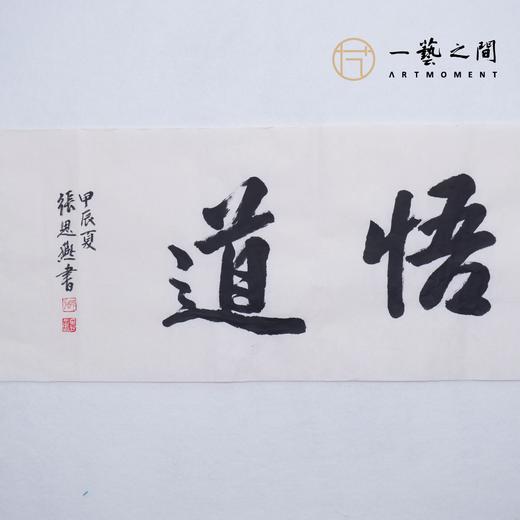 一藝之間
ARTMOMENT
悟道
甲辰夏
張思燕書